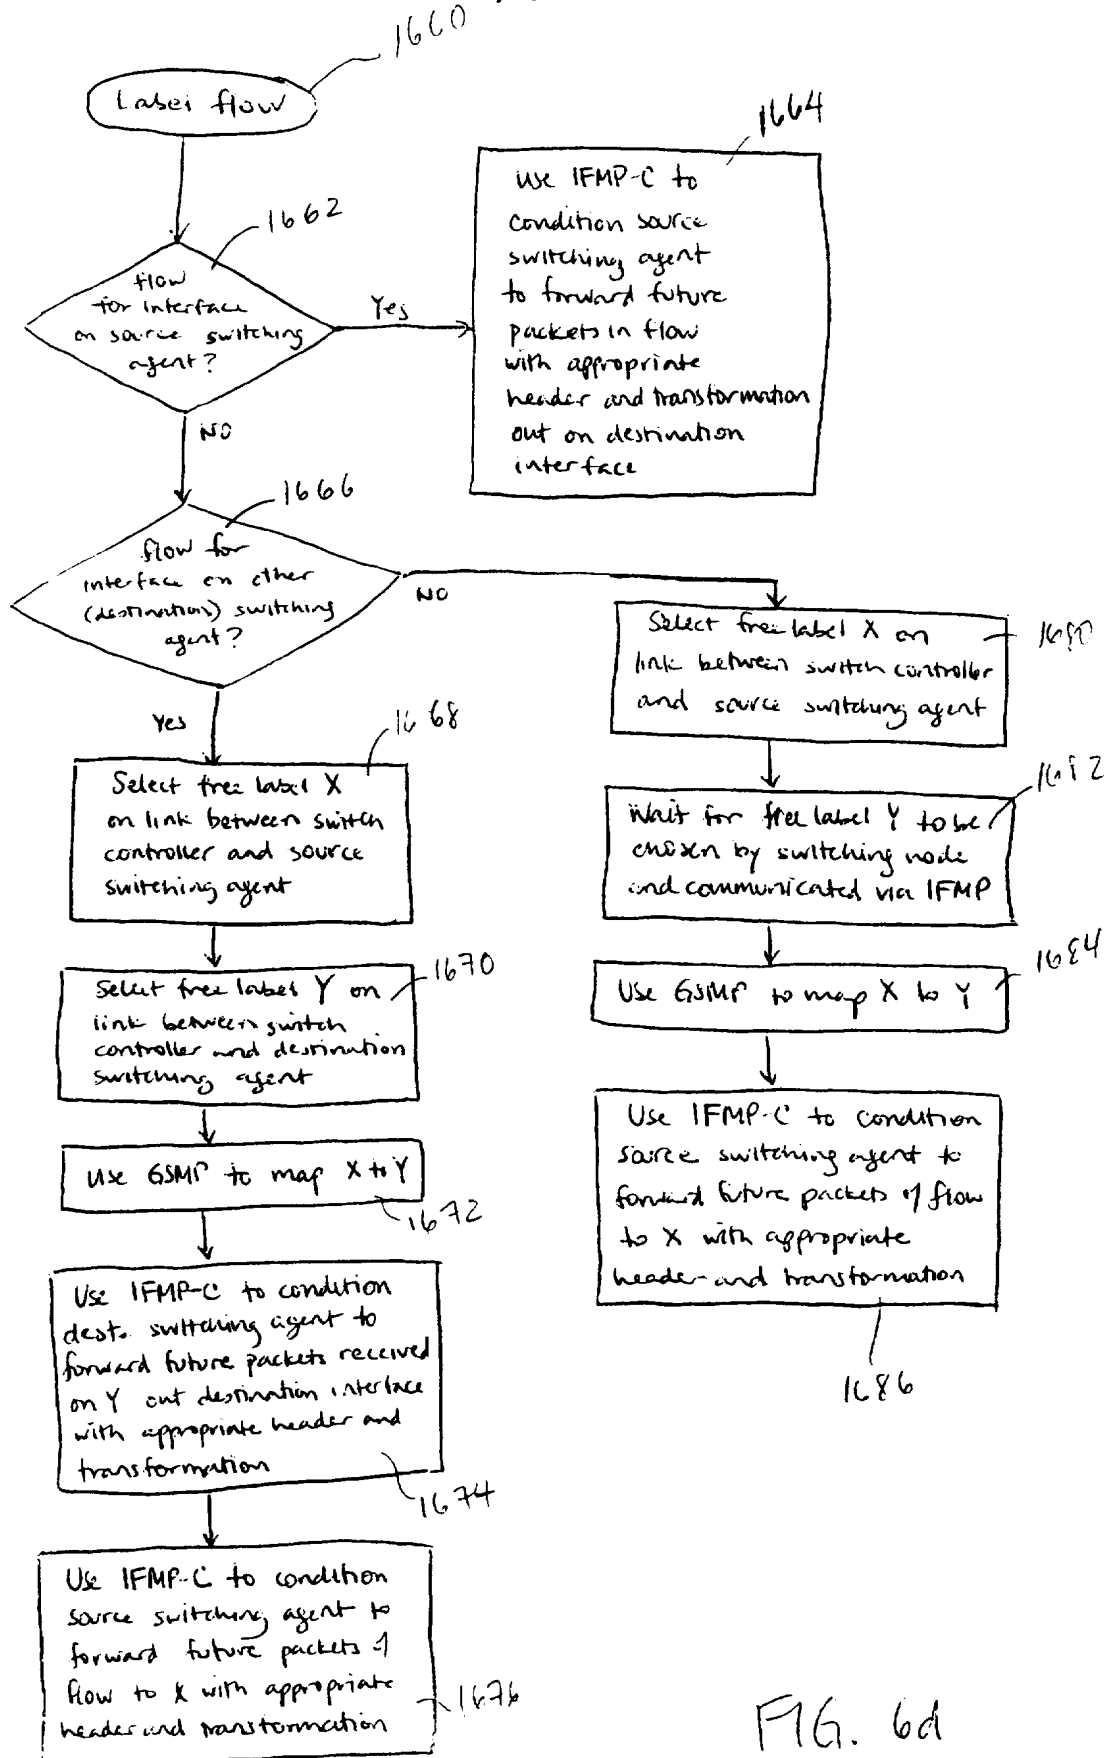 1660
Label flow
1662
flow
for interface
on source switching
agent?
Yes
1664
Use IFMP-C to
condition source
switching agent
to forward future
packets in flow
with appropriate
header and transformation
out on destination
interface
NO
1666
flow for
interface on other
(destination) switching
agent?
NO
Yes
1668
Select free label X
on link between switch
controller and source
switching agent
1670
Select free label Y on
link between switch
controller and destination
switching agent
Use GSMP to map X to Y
1672
Use IFMP-C to condition
dest. switching agent to
forward future packets received
on Y out destination interface
with appropriate header and
transformation
1674
Use IFMP-C to condition
source switching agent to
forward future packets of
flow to X with appropriate
header and transformation
1676
Select free label X on
link between switch controller
and source switching agent
1680
Wait for free label Y to be
chosen by switching node
and communicated via IFMP
1682
Use GSMP to map X to Y
1684
Use IFMP-C to condition
source switching agent to
forward future packets of flow
to X with appropriate
header and transformation
1686
FIG. 6d